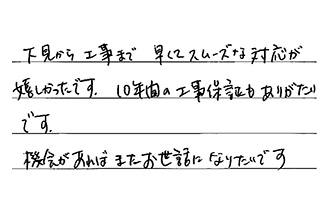 下見から工事まで 早くてスムーズな対応が
嬉しかったです。10年間の工事保証もありがたい
です。
機会があればまたお世話になりたいです